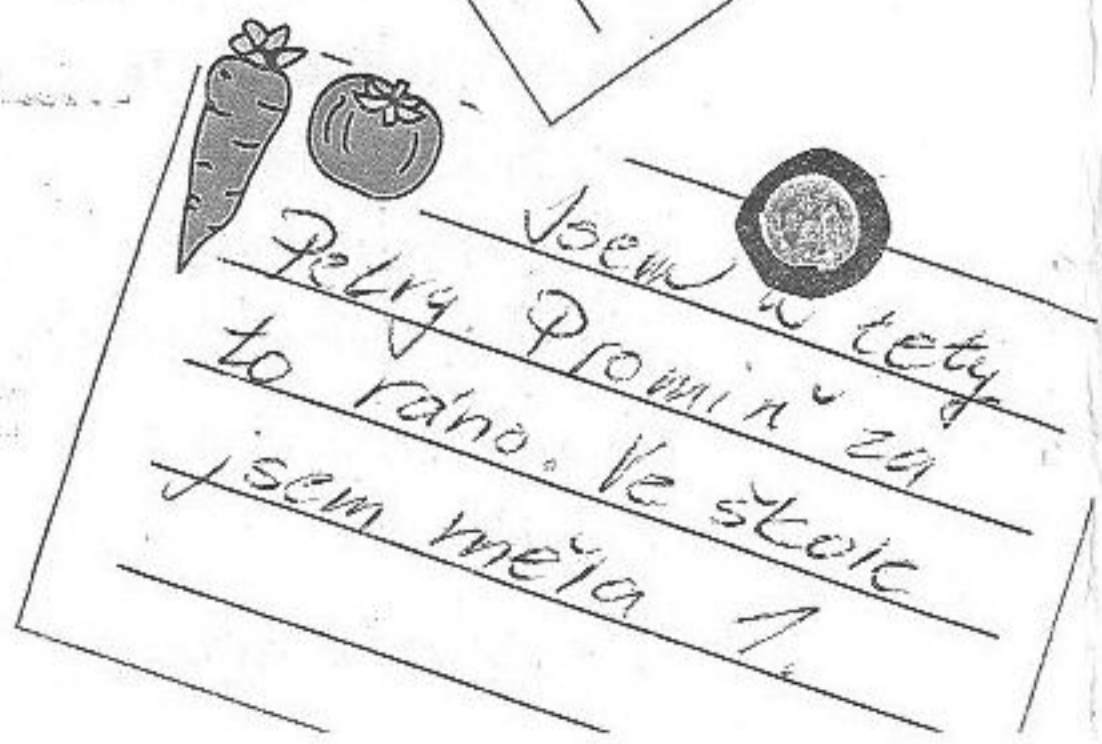 Jsem u tety
Petry. Promiň za
to ráno. Ve škole
jsem měla 1.